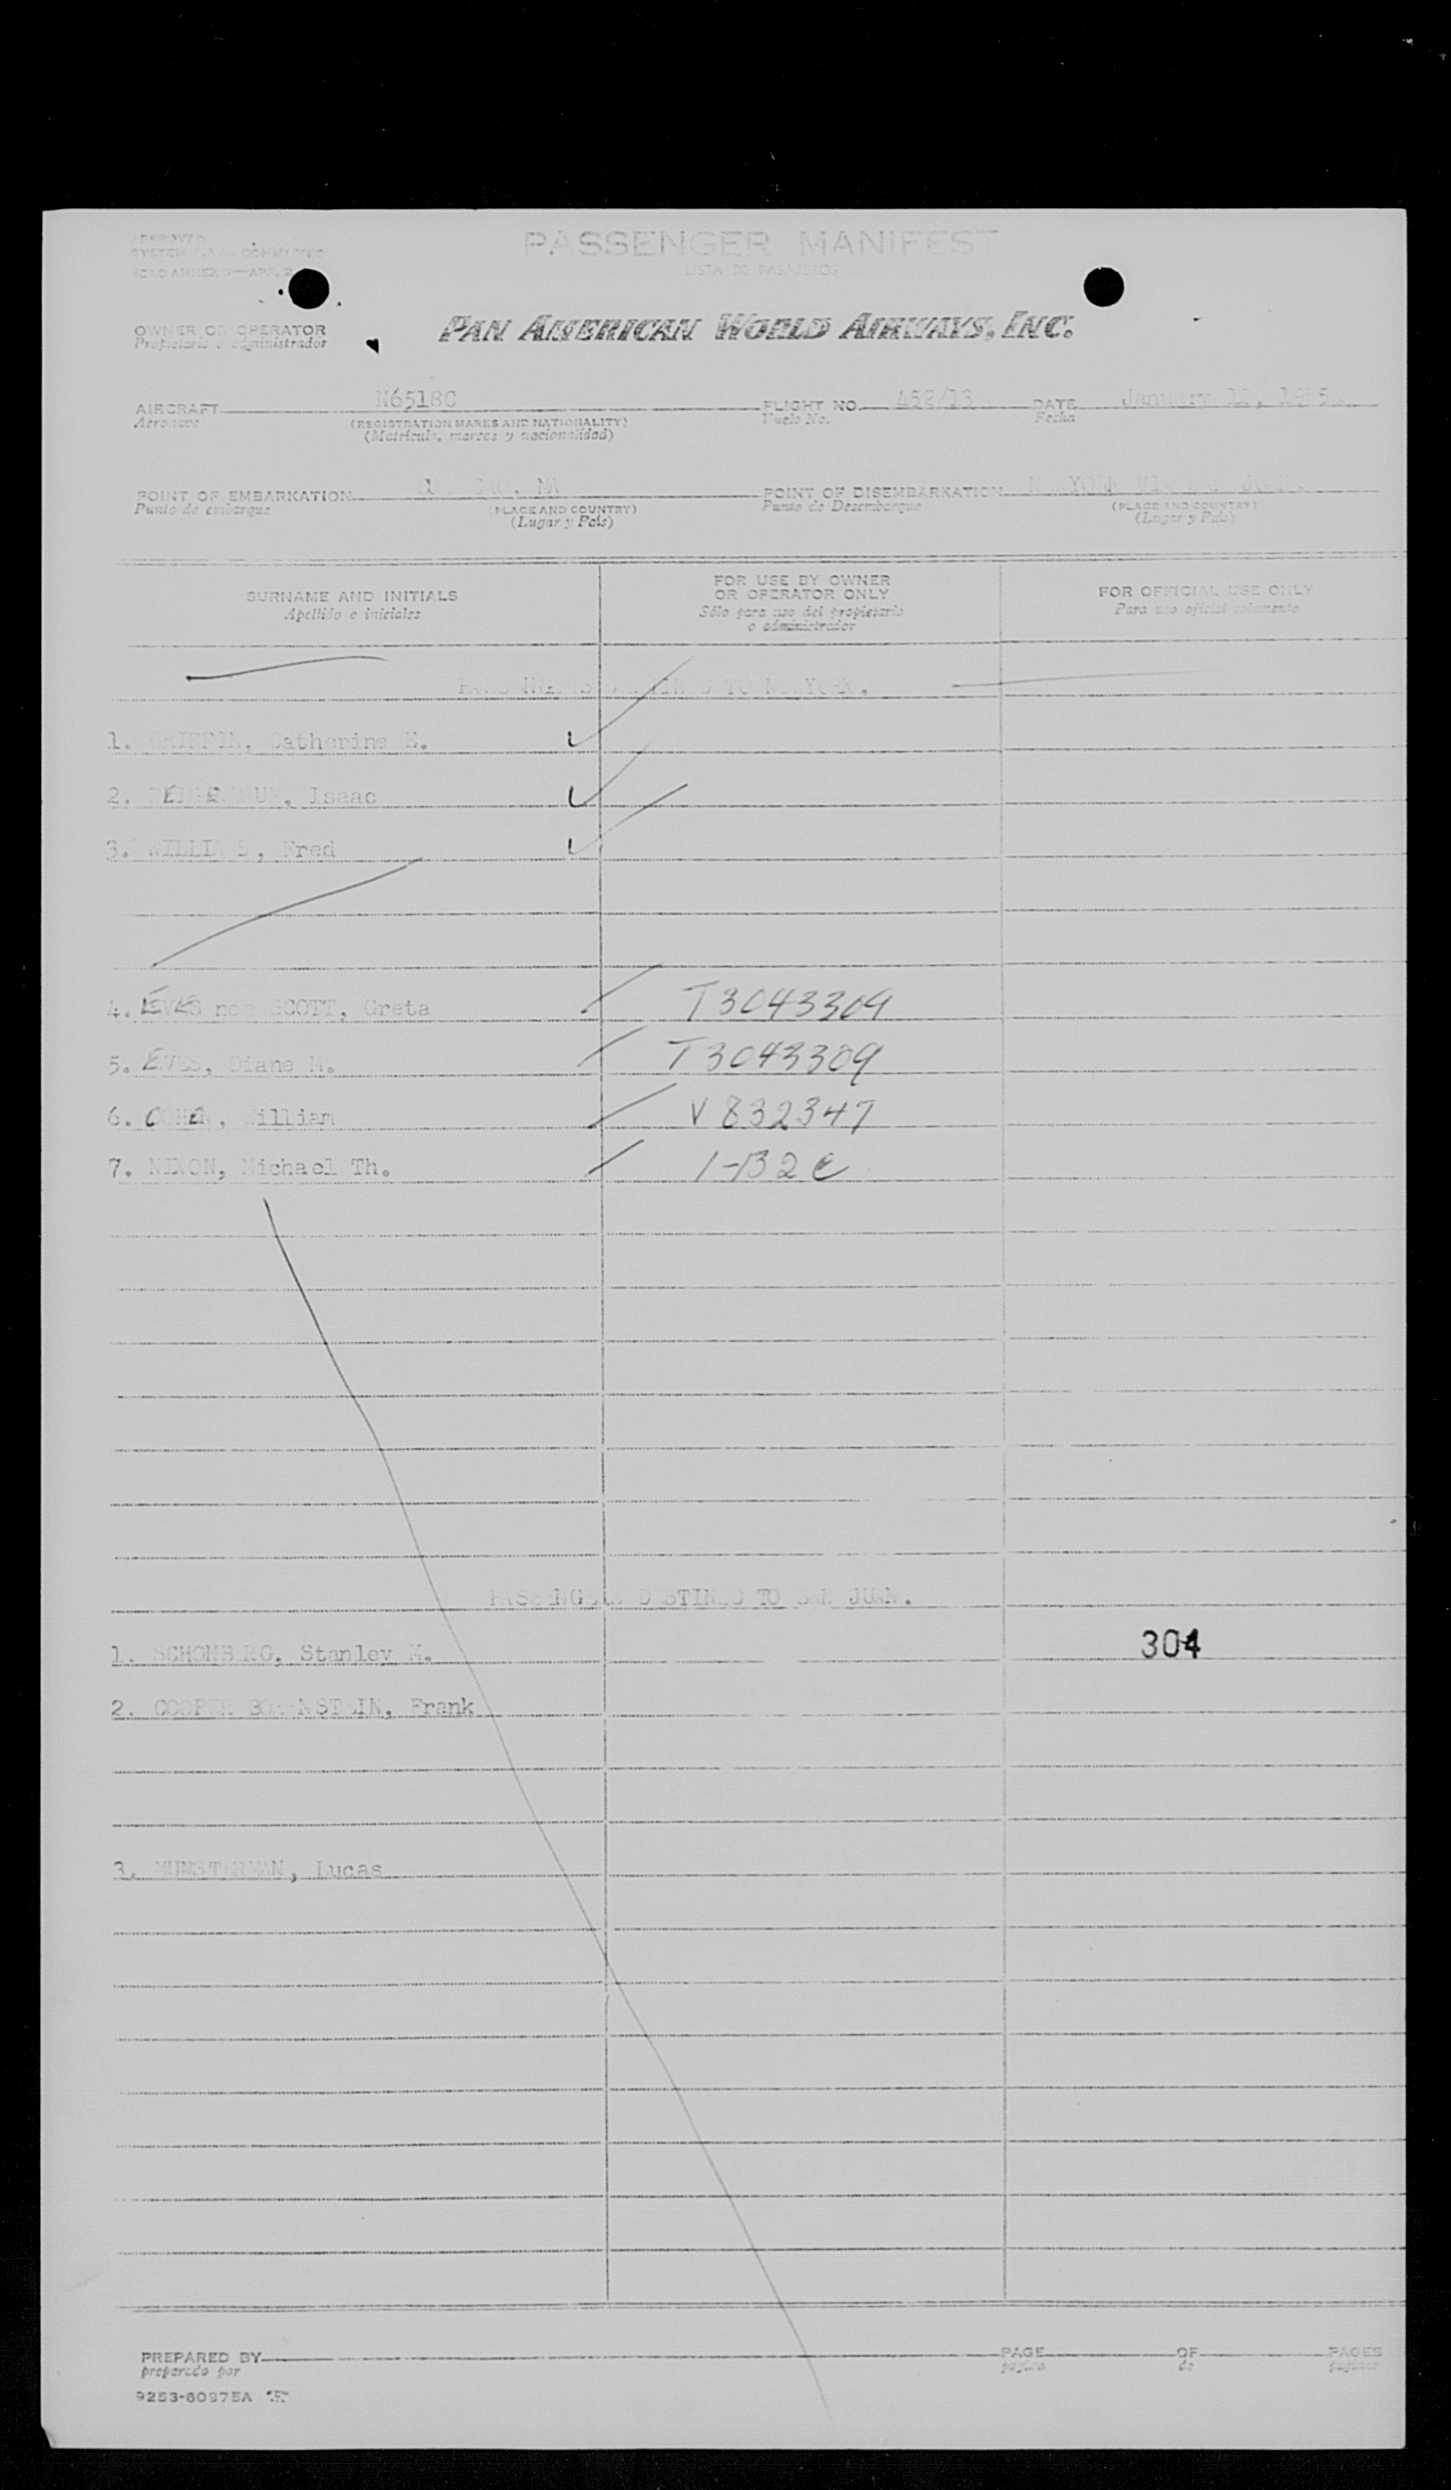 PASSENGER MANIFEST
LISTA DE PASAJEROS
OWNER OR OPERATOR
Propietario o administrador
PAN AMERICAN WORLD AIRWAYS, INC.
AIRCRAFT N6518C FLIGHT NO. 452/13 DATE January
Aeronave (REGISTRATION MARKS AND NATIONALITY) Vuelo No. Fecha
(Matrícula, marcas y nacionalidad)
POINT OF EMBARKATION POINT OF DISEMBARKATION
Punto de embarque (PLACE AND COUNTRY) Punto de Desembarque (PLACE AND COUNTRY)
(Lugar y País) (Lugar y País)
SURNAME AND INITIALS FOR USE BY OWNER OR OPERATOR ONLY FOR OFFICIAL USE ONLY
Apellido e iniciales Sólo para uso del propietario o administrador Para uso oficial solamente
TO
1. Catherine E.
2. Isaac
3. Fred
4. EVES nee SCOTT, Greta T3043309
5. EVES, Diane M. T3043309
6. COHEN, William V832347
7. NIXON, Michael Th. 1-B2C
PASSENGERS DESTINED TO SAN JUAN.
1. SCHONBERG, Stanley M. 304
2. COOPER BORNSTEIN, Frank
3. MUNSTERMAN, Lucas
PREPARED BY PAGE OF PAGES
preparado por página de páginas
9253-60975A